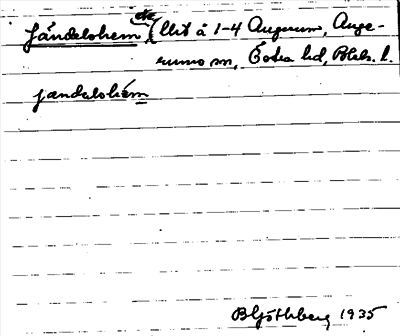 Jändelshem etc (llit å 1-4 Augerum, Auge-
rums sn, Östra hd, Blek. l.
jændelshém
B Göthberg 1935